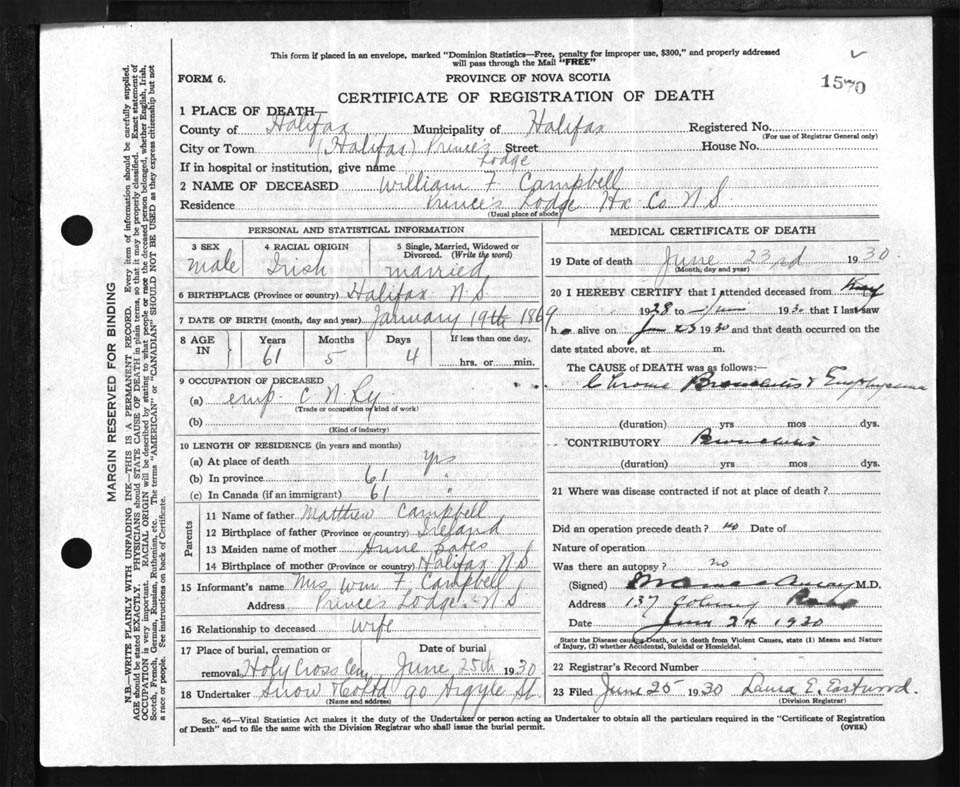 This form if placed in an envelope, marked "Dominion Statistics—Free, penalty for improper use, $300," and properly addressed
will pass through the Mail "FREE"
FORM 6.
PROVINCE OF NOVA SCOTIA
1570
CERTIFICATE OF REGISTRATION OF DEATH
1 PLACE OF DEATH—
County of Halifax Municipality of Halifax Registered No.
(For use of Registrar General only)
City or Town (Halifax) Prince's Lodge Street House No.
If in hospital or institution, give name
2 NAME OF DECEASED William F. Campbell
Residence Prince's Lodge Hx Co N S.
(Usual place of abode)
PERSONAL AND STATISTICAL INFORMATION
3 SEX 4 RACIAL ORIGIN 5 Single, Married, Widowed or
Divorced. (Write the word)
male Irish married
6 BIRTHPLACE (Province or country) Halifax N.S.
7 DATE OF BIRTH (month, day and year) January 19th 1869
8 AGE IN Years Months Days If less than one day,
61 5 4 hrs. or min.
9 OCCUPATION OF DECEASED
(a) emp. C N Ry.
(Trade or occupation or kind of work)
(b)
(Kind of industry)
10 LENGTH OF RESIDENCE (in years and months)
(a) At place of death yrs
(b) In province 61 "
(c) In Canada (if an immigrant) 61 "
Parents
11 Name of father Matthew Campbell
12 Birthplace of father (Province or country) Ireland
13 Maiden name of mother Anne
14 Birthplace of mother (Province or country) Halifax N.S.
15 Informant's name Mrs Wm F. Campbell
Address Prince's Lodge N S
16 Relationship to deceased wife
17 Place of burial, cremation or removal Date of burial
Holy Cross Cem June 25th 1930
18 Undertaker Snow & Co Ltd 90 Argyle St.
(Name and address)
MEDICAL CERTIFICATE OF DEATH
19 Date of death June 23rd 1930.
(Month, day and year)
20 I HEREBY CERTIFY that I attended deceased from
1928 to 1930 that I last saw
h alive on June 23 1930 and that death occurred on the
date stated above, at m.
The CAUSE of DEATH was as follows:—
Chronic Bronchitis & Emphysema
(duration) yrs mos dys.
CONTRIBUTORY Bronchitis
(duration) yrs mos dys.
21 Where was disease contracted if not at place of death?
Did an operation precede death? no Date of
Nature of operation
Was there an autopsy? no
(Signed) M.D.
Address 137
Date June 24 1930
State the Disease causing Death, or in death from Violent Causes, state (1) Means and Nature
of Injury, (2) whether Accidental, Suicidal or Homicidal.
22 Registrar's Record Number
23 Filed June 25 1930 Laura E. Eastwood.
(Division Registrar)
Sec. 46—Vital Statistics Act makes it the duty of the Undertaker or person acting as Undertaker to obtain all the particulars required in the "Certificate of Registration
of Death" and to file the same with the Division Registrar who shall issue the burial permit.
(OVER)
MARGIN RESERVED FOR BINDING
N.B.—WRITE PLAINLY WITH UNFADING INK—THIS IS A PERMANENT RECORD. Every item of information should be carefully supplied.
AGE should be stated EXACTLY. PHYSICIANS should STATE CAUSE OF DEATH in plain terms, so that it may be properly classified. Exact statement of
OCCUPATION is very important. RACIAL ORIGIN will be described by stating to what people or race the deceased person belonged, whether English, Irish,
Scotch, French, German, Russian, Ruthenian, etc. The terms "AMERICAN" or "CANADIAN" SHOULD NOT BE USED as they express citizenship but not
a race or people. See instructions on back of Certificate.